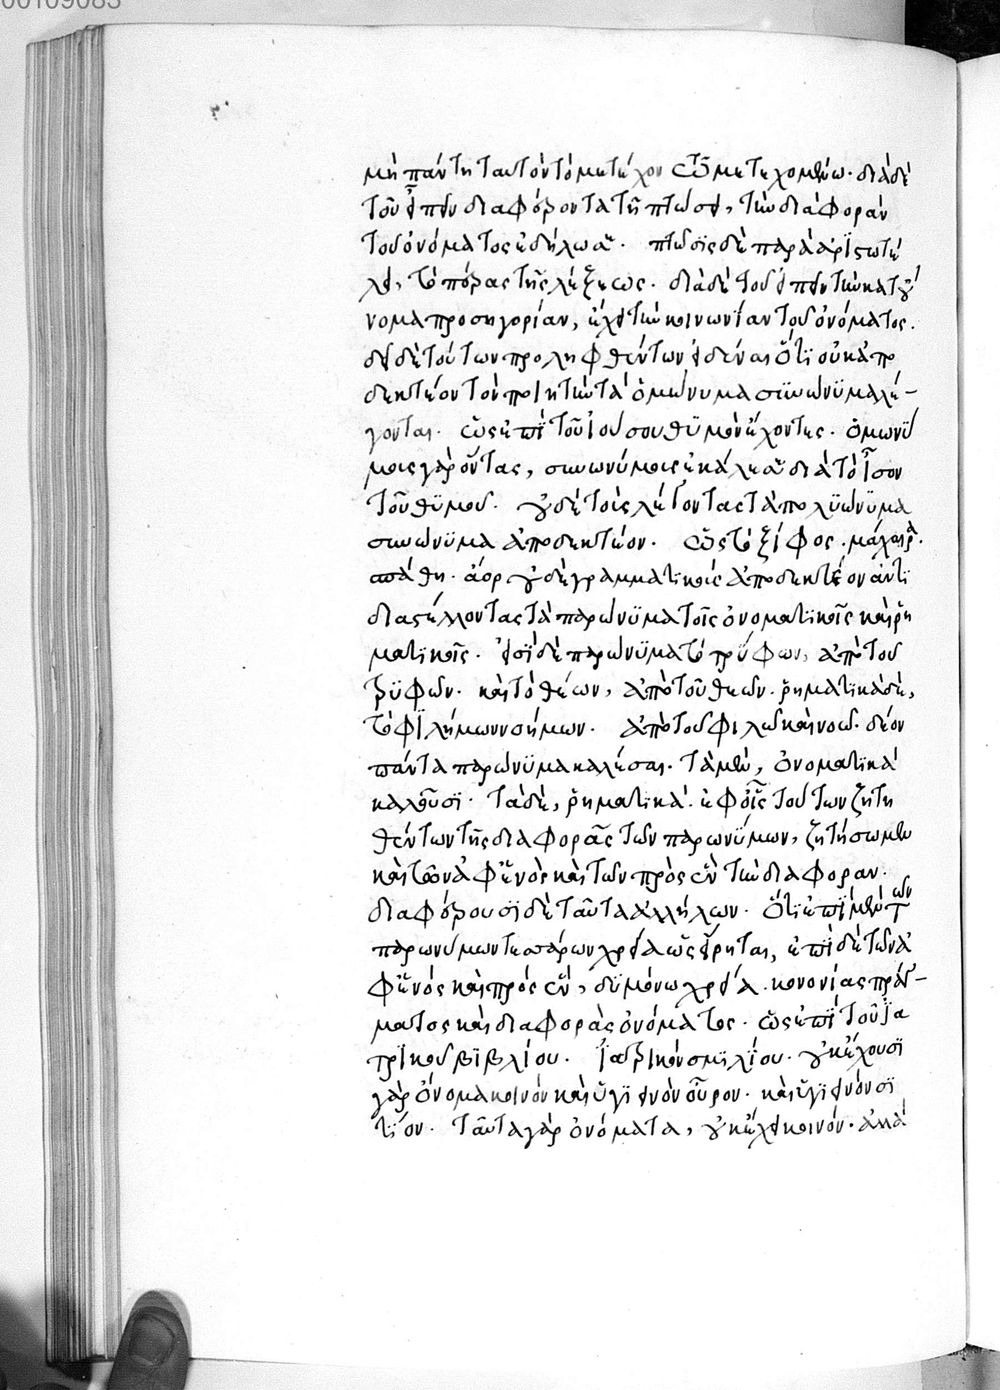 00109083
μὴ πάντη ταυτὸν τὸ μετέχον τῷ μετεχομένῳ· διὰ δὲ
τοῦ εἰπεῖν διαφέροντα τῇ πτώσει, τὴν διάφοραν
τοῦ ὀνόματος ἐδήλωσε· πτῶσϊς δὲ παρὰ ἀρϊστωτέ
λει, τὸ πέρας τῆς λέξεως· διὰ δὲ τοῦ εἰπεῖν τὴν κατ' οὔ
νομα προσηγορίαν, ἔχει τὴν κοινωνίαν τοῦ ὀνόματος.
δεῖ δὲ τούτων προληφθέντων εἰδέναι ὅτϊ οὐκ ἀπο
δεκτέον τὸν ποιητὴν τὰ ὁμώνυμα συνώνϋμα λέ-
γοντα· ὡς ἐπῒ τοῦ ἴσου θϋμὸν ἔχοντες· ὁμωνύ
μοις γὰρ ὄντας, συνωνύμοις ἐκάλεσε διὰ τὸ ἶσον
τοῦ θϋμοῦ· οὐδὲ τοὺς λέγοντας τὰ πολϋώνϋμα
συνώνϋμα ἀποδεκτέον· ὡς τὸ ξίφος· μάχαιρα·
σπάθη· ἄορ οὐδὲ γραμματϊκοὺς ἀποδεκτέον ἀντϊ
διαστέλλοντας τὰ παρώνϋμα τοῖς ὀνοματϊκοῖς καὶ ῥη
ματϊκοῖς· εἰσῒ δὲ παρώνϋμα τὸ τρύφων, ἀπὸ τοῦ
τρϋφῶν· καὶ τὸ θέων, ἀπὸ τοῦ θεῶν· ῥηματϊκὰ δὲ,
τὸ φϊλήμων νοήμων· ἀπὸ τοῦ φιλῶ καὶ νοῶ· δέον
πάντα παρώνϋμα καλέσαι· τὰ μὲν, ὀνοματϊκὰ
καλοῦσϊ· τὰ δὲ, ῥηματϊκά· ἐφ' οἷς τούτων ζητη
θέντων τῆς διαφορᾶς τῶν παρωνύμων, ζητήσωμεν
καὶ τῶν ἀφ' ἑνὸς καὶ τῶν πρὸς ἓν τὴν διαφοραν·
διαφέρουσϊ δὲ ταῦτα ἀλλήλων· ὅτϊ ἐπῒ μὲν τῶν
παρωνύμων τεσσάρων χρεία ὡς εἴρηται, ἐπῒ δὲ τῶν ἀ
φ' ἑνός καὶ πρός ἕν, δϋ μόνων χρεία· κονονίας πράγ-
ματος καὶ διαφορὰς ὀνόματος· ὡς ἐπῒ τοῦ ἰα
τρϊκοῦ βϊβλίου· ἰατρϊκόν σμϊλίου· οὐκ ἔχουσϊ
γὰρ ὄνομα κοινὸν καὶ ὑγϊεινὸν οὖρον· καὶ ὑγϊεινόν σϊ
τϊον· ταῦτα γὰρ ὀνόματα, οὐκ ἔχει κοινόν· ἀλλὰ